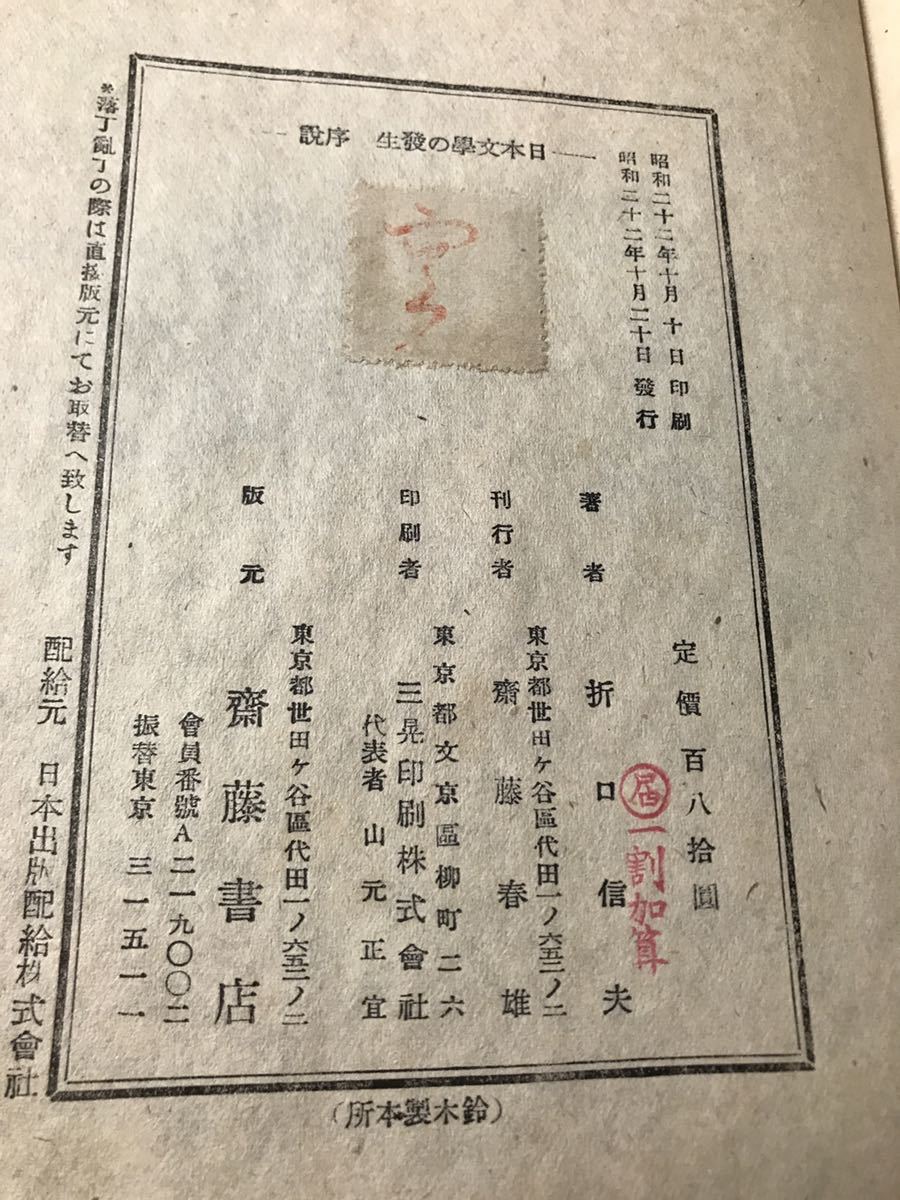 日本文學の發生 序說
昭和二十二年十月十日印刷
昭和二十二年十月二十日發行
定價百八拾圓
届一割加算
著者 折口信夫
東京都世田ヶ谷區代田一ノ六五二ノ二
刊行者 齋藤春雄
東京都文京區柳町二六
印刷者 三晃印刷株式會社
代表者 山元正宜
東京都世田ヶ谷區代田一ノ六五二ノ二
版元 齋藤書店
會員番號A二一九〇〇二
振替東京 三一五一一
*落丁亂丁の際は直接版元にてお取替へ致します
配給元 日本出版配給株式會社
(鈴木製本所)